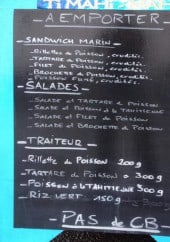 TI MAHI MAHI
A EMPORTER
SANDWICH MARIN
- Rillettes de Poisson, crudités.
- Tartare de Poisson, crudités.
- Filet de Poisson, crudités.
- Brochette de Poisson, crudités.
- Poisson Fumé, crudités.
SALADES
- Salade et Tartare de Poisson
- Salade et Poisson à la Tahitienne
- Salade et Filet de Poisson
- Salade et Brochette de Poisson
TRAITEUR
- Rillette de Poisson 200g
- Tartare de Poisson 300g
- Poisson à la Tahitienne 300g
- Riz vert 150g
PAS de CB